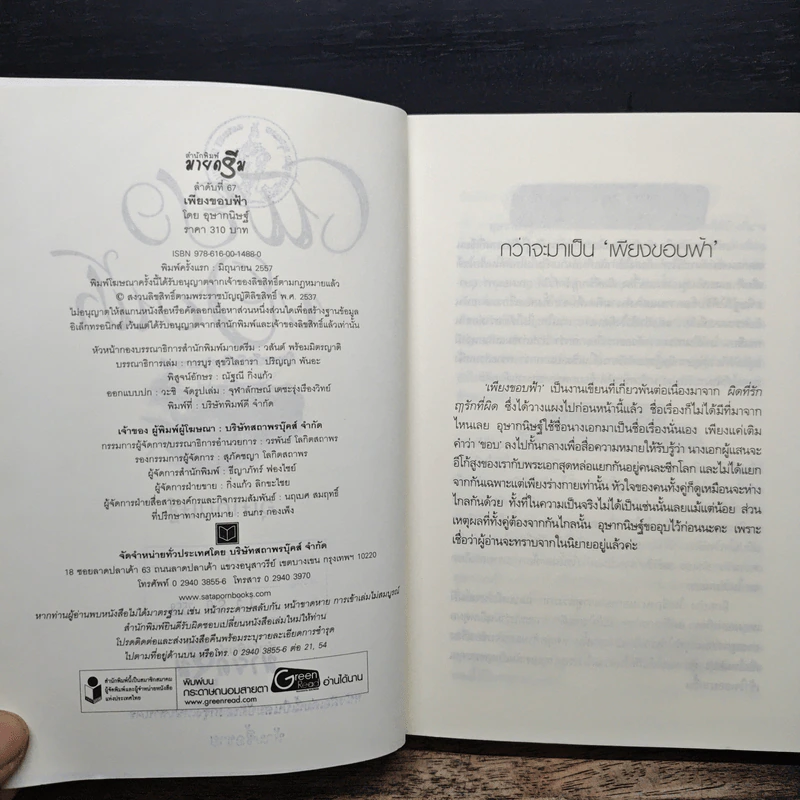 สำนักพิมพ์
มายดรีม
ลำดับที่ 67
เพียงขอบฟ้า
โดย อุษากนิษฐ์
ราคา 310 บาท
ISBN 978-616-00-1488-0
พิมพ์ครั้งแรก : มิถุนายน 2557
พิมพ์โฆษณาครั้งนี้ได้รับอนุญาตจากเจ้าของลิขสิทธิ์ตามกฎหมายแล้ว
© สงวนลิขสิทธิ์ตามพระราชบัญญัติลิขสิทธิ์ พ.ศ. 2537
ไม่อนุญาตให้สแกนหนังสือหรือคัดลอกเนื้อหาส่วนหนึ่งส่วนใดเพื่อสร้างฐานข้อมูล
อิเล็กทรอนิกส์ เว้นแต่ได้รับอนุญาตจากสำนักพิมพ์และเจ้าของลิขสิทธิ์แล้วเท่านั้น
หัวหน้ากองบรรณาธิการสำนักพิมพ์มายดรีม : วสันต์ พร้อมมิตรญาติ
บรรณาธิการเล่ม : การบูร สุขวิไลธารา ปริญญา พันอะ
พิสูจน์อักษร : ณัฐณี กิ่งแก้ว
ออกแบบปก : วะชิ จัดรูปเล่ม : จุฬาลักษณ์ เดชะรุ่งเรืองวิทย์
พิมพ์ที่ : บริษัทพิมพ์ดี จำกัด
เจ้าของ ผู้พิมพ์ผู้โฆษณา : บริษัทสถาพรบุ๊คส์ จำกัด
กรรมการผู้จัดการ/บรรณาธิการอำนวยการ : วรพันธ์ โลกิตสถาพร
รองกรรมการผู้จัดการ : สุภัคชญา โลกิตสถาพร
ผู้จัดการสำนักพิมพ์ : ธีญาภัทร์ ฟองไชย์
ผู้จัดการฝ่ายขาย : กิ่งแก้ว ลิกขะไชย
ผู้จัดการฝ่ายสื่อสารองค์กรและกิจกรรมสัมพันธ์ : นฤเบศ สมฤทธิ์
ที่ปรึกษาทางกฎหมาย : ธนกร กองเพ็ง
จัดจำหน่ายทั่วประเทศโดย บริษัทสถาพรบุ๊คส์ จำกัด
18 ซอยลาดปลาเค้า 63 ถนนลาดปลาเค้า แขวงอนุสาวรีย์ เขตบางเขน กรุงเทพฯ 10220
โทรศัพท์ 0 2940 3855-6 โทรสาร 0 2940 3970
www.satapornbooks.com
หากท่านผู้อ่านพบหนังสือไม่ได้มาตรฐาน เช่น หน้ากระดาษสลับกัน หน้าขาดหาย การเข้าเล่มไม่สมบูรณ์
สำนักพิมพ์ยินดีรับผิดชอบเปลี่ยนหนังสือเล่มใหม่ให้ท่าน
โปรดติดต่อและส่งหนังสือคืนพร้อมระบุรายละเอียดการชำรุด
ไปตามที่อยู่ด้านบน หรือโทร. 0 2940 3855-6 ต่อ 21, 54
สำนักพิมพ์นี้เป็นสมาชิกสมาคม
ผู้จัดพิมพ์และผู้จำหน่ายหนังสือ
แห่งประเทศไทย
พิมพ์บน
กระดาษถนอมสายตา
www.greenread.com
Green
Read
อ่านได้นาน
กว่าจะมาเป็น ‘เพียงขอบฟ้า’
‘เพียงขอบฟ้า’ เป็นงานเขียนที่เกี่ยวพันต่อเนื่องมาจาก ผิดที่รัก
ฤๅรักที่ผิด ซึ่งได้วางแผงไปก่อนหน้านี้แล้ว ชื่อเรื่องก็ไม่ได้มีที่มาจาก
ไหนเลย อุษากนิษฐ์ใช้ชื่อนางเอกมาเป็นชื่อเรื่องนั่นเอง เพียงแค่เติม
คำว่า ‘ขอบ’ ลงไปกึ่งกลางเพื่อสื่อความหมายให้รับรู้ว่า นางเอกผู้แสนจะ
อีโก้สูงของเรากับพระเอกสุดหล่อแยกกันอยู่คนละซีกโลก และไม่ได้แยก
จากกันเฉพาะแต่เพียงร่างกายเท่านั้น หัวใจของคนทั้งคู่ก็ดูเหมือนจะห่าง
ไกลกันด้วย ทั้งที่ในความเป็นจริงไม่ได้เป็นเช่นนั้นเลยแม้แต่น้อย ส่วน
เหตุผลที่ทั้งคู่ต้องจากกันไกลนั้น อุษากนิษฐ์ขออุบไว้ก่อนนะคะ เพราะ
เชื่อว่าผู้อ่านจะทราบจากในนิยายอยู่แล้วค่ะ